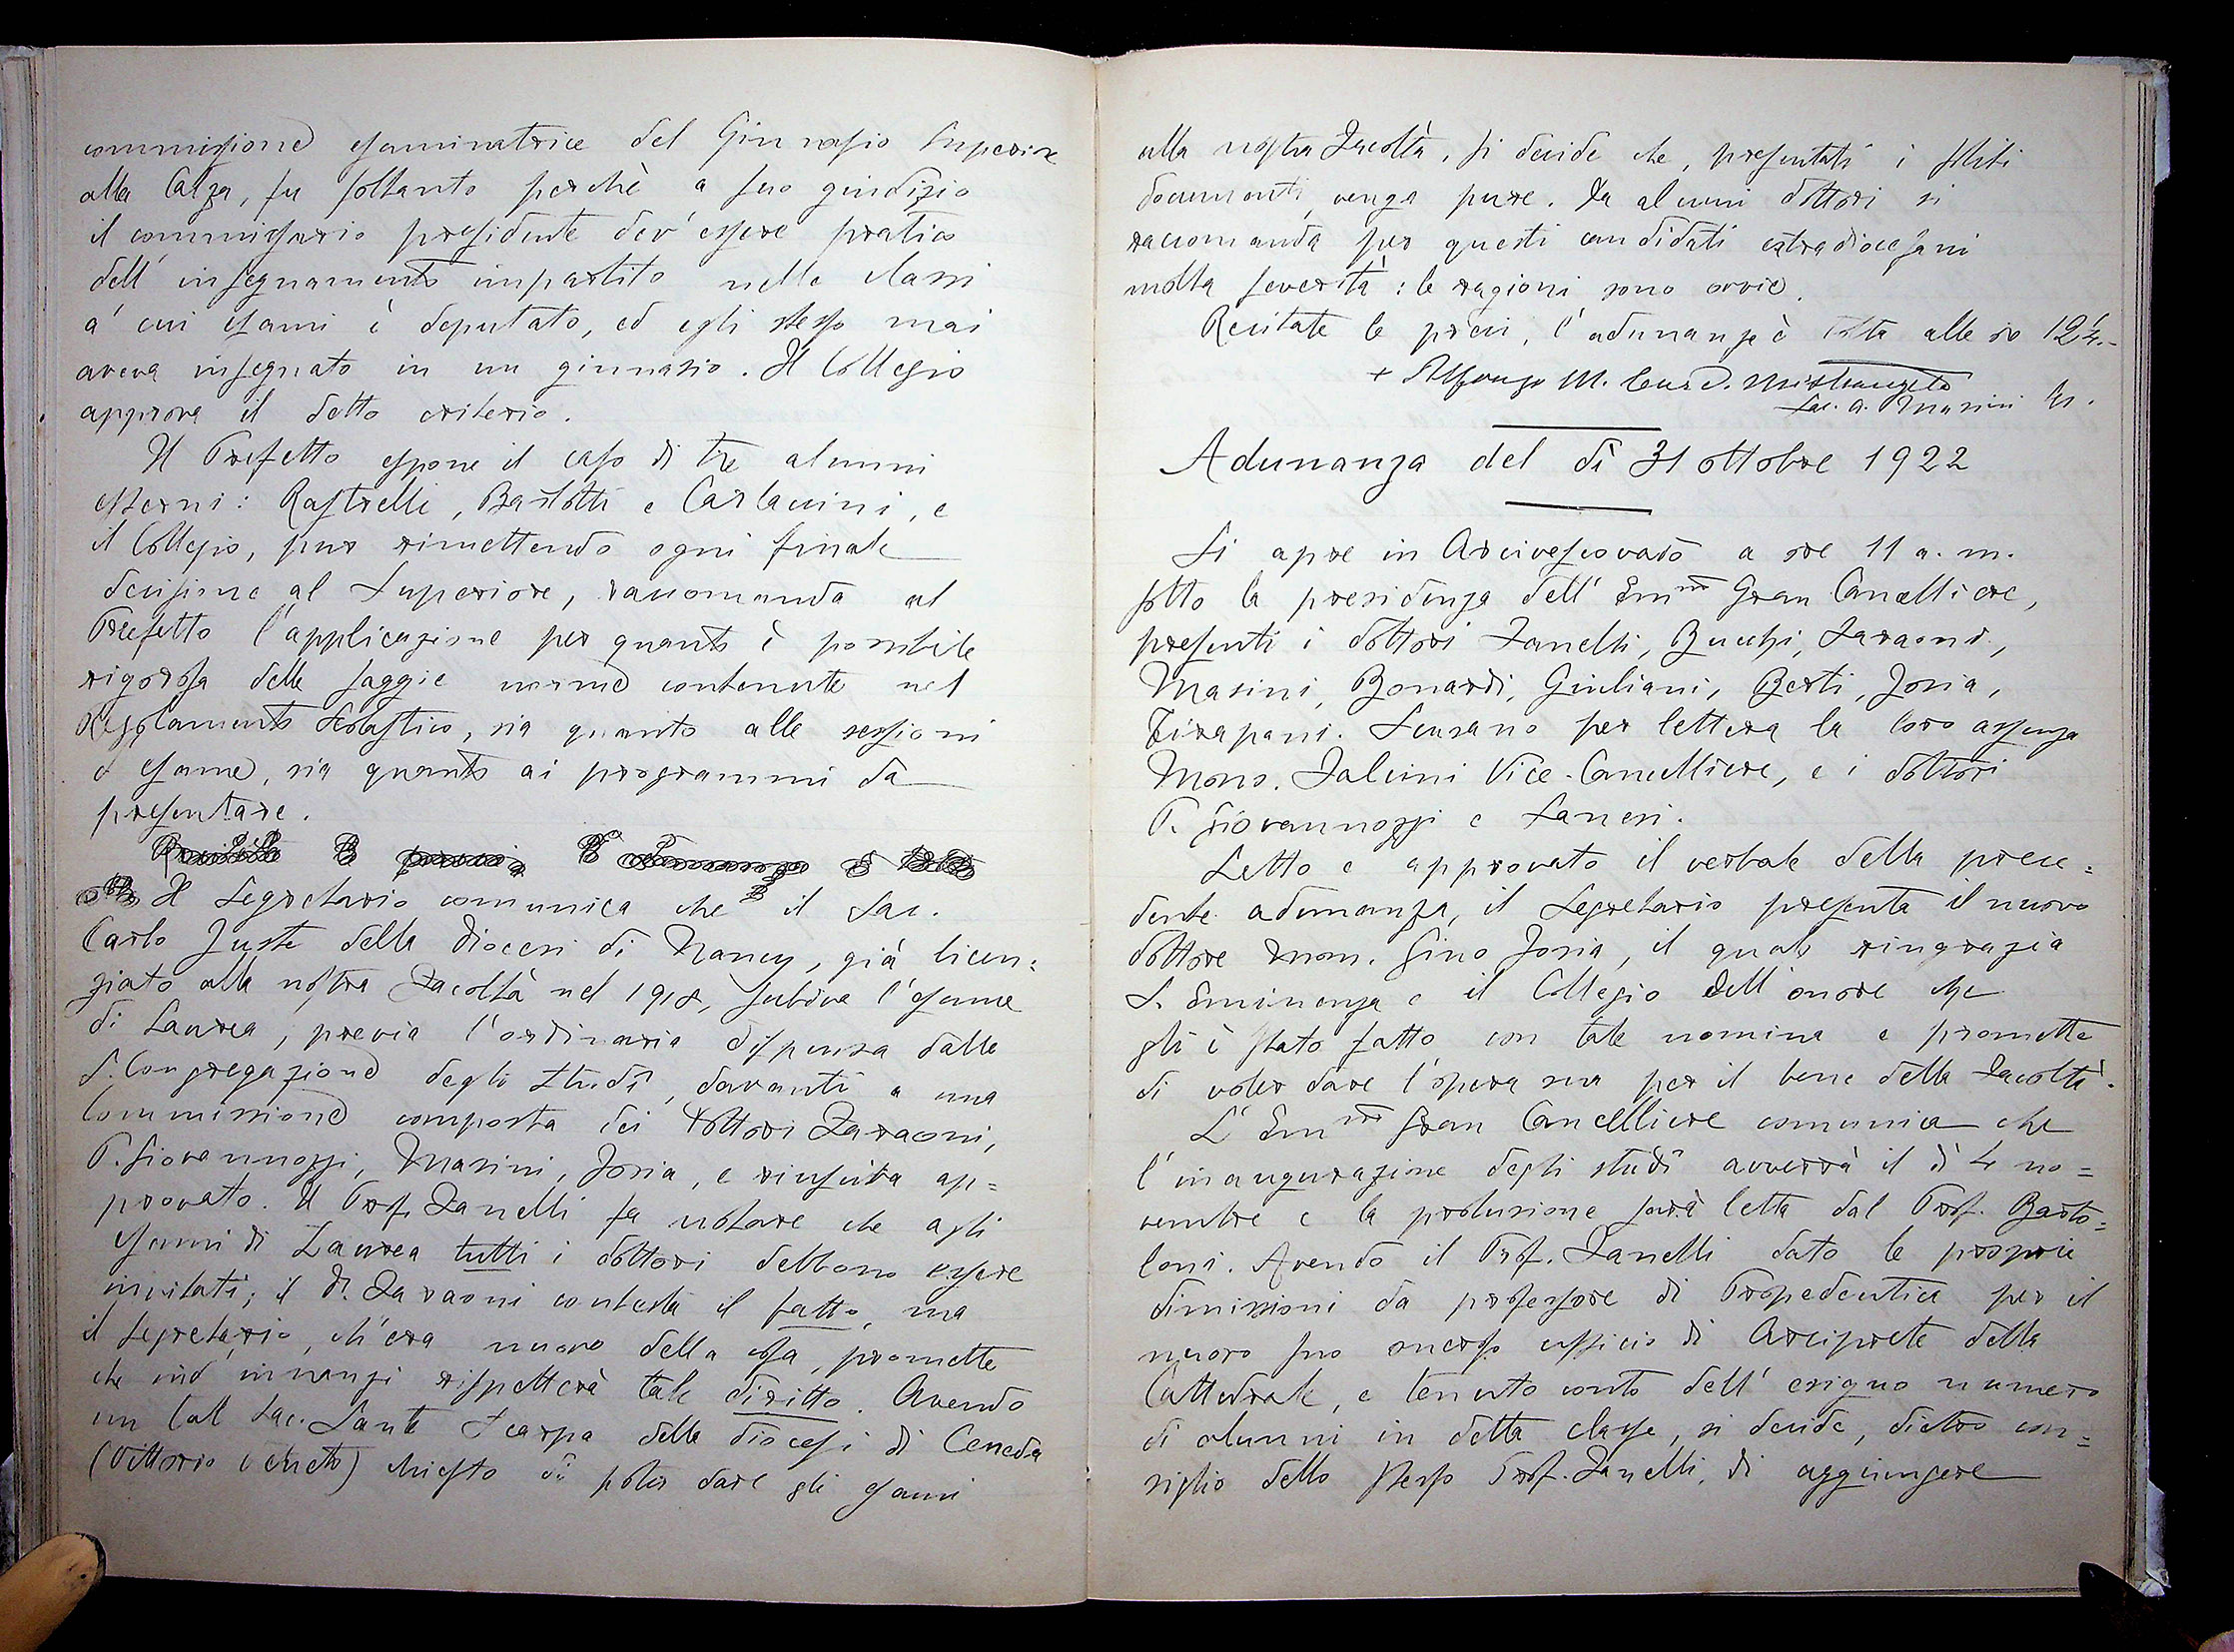 commissione esaminatrice del Ginnasio Superiore
alla Calza, fu soltanto perchè a suo giudizio
il commissario presidente dev'essere pratico
dell'insegnamento impartito nelle classi
a' cui esami è deputato, ed egli stesso mai
aveva insegnato in un ginnasio. Il Collegio
approva il detto criterio.
Il Prefetto espone il caso di tre alunni
esterni: Rastrelli, Barlotti e Carlacini, e
il Collegio, pur rimettendo ogni finale
decisione al Superiore, raccomanda al
Prefetto l'applicazione per quanto è possibile
rigorosa delle sagge norme contenute nel
Regolamento Scolastico, sia quanto alle sessioni
d'esame, sia quanto ai programmi da
presentare.
Il Segretario comunica che il Sac.
Carlo Juste della diocesi di Nancy, già licen=
ziato alla nostra Facoltà nel 1918, subiva l'esame
di Laurea, previa l'ordinaria dispensa dalla
S. Congregazione degli Studî, davanti a una
Commissione composta dei dottori Faraoni,
P. Giovannozzi, Masini, Josia, e riusciva ap=
provato. Il Prof. Zanelli fa notare che agli
esami di Laurea tutti i dottori debbono essere
invitati; il D. Faraoni contesta il fatto, ma
il Segretario, ch'era nuovo della cosa, promette
che ind' innanzi rispetterà tale diritto. Avendo
un tal Sac. Sante Scarpa della diocesi di Ceneda
(Vittorio Veneto) chiesto di poter dare gli esami
alla nostra Facoltà, si decide che, presentati i soliti
documenti, venga pure. Da alcuni dottori si
raccomanda per questi candidati extradiocesani
molta severità: le ragioni sono ovvie.
Recitate le preci, l'adunanza è tolta alle ore 12¼.-
+ Alfonso M. Card. Mistrangelo
Sac. A. Masini
Adunanza del dì 31 ottobre 1922
Si apre in Arcivescovado a ore 11 a. m.
sotto la presidenza dell' Emmo Gran Cancelliere,
presenti i dottori Zanelli, Bucchi, Faraoni,
Masini, Bonardi, Giuliani, Berti, Josia,
Tirapani. Scusano per lettera la loro assenza
Mons. Falcini Vice-Cancelliere, e i dottori
P. Giovannozzi e Saneri.
Letto e approvato il verbale della prece=
dente adunanza, il Segretario presenta il nuovo
dottore Mons. Gino Josia, il quale ringrazia
S. Eminenza e il Collegio dell'onore che
gli è stato fatto con tale nomina e promette
di voler dare l'opera sua per il bene della Facoltà.
L' Emmo Gran Cancelliere comunica che
l'inaugurazione degli studî avverrà il dì 4 no=
vembre e la prolusione sarà letta dal Prof. Barto=
loni. Avendo il Prof. Zanelli dato le proprie
dimissioni da professore di Propedeutica per il
nuovo suo officio di Arciprete della
Cattedrale, e tenuto conto dell' esiguo numero
di alunni in detta classe, si decide, dietro con=
siglio dello stesso Prof. Zanelli, di aggiungere